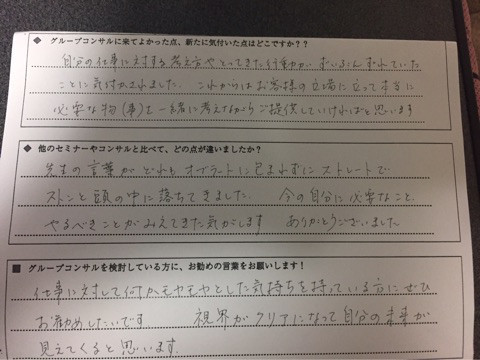 ◆ グループコンサルに来てよかった点、新たに気付いた点はどこですか？？
自分の仕事に対する考え方ややってきた行動が、ずいぶんずれていた
ことに気付かされました。これからはお客様の立場に立って本当に
必要な物（事）を一緒に考えながらご提供していければと思います
◆ 他のセミナーやコンサルと比べて、どの点が違いましたか？
先生の言葉がどれもオブラートに包まれずにストレートで
ストンと頭の中に落ちてきました。今の自分に必要なこと、
やるべきことがみえてきた気がします ありがとうございました
■ グループコンサルを検討している方に、お勧めの言葉をお願いします！
仕事に対して何かモヤモヤとした気持ちを持っている方にぜひ
お勧めしたいです 視界がクリアになって自分の未来が
見えてくると思います。